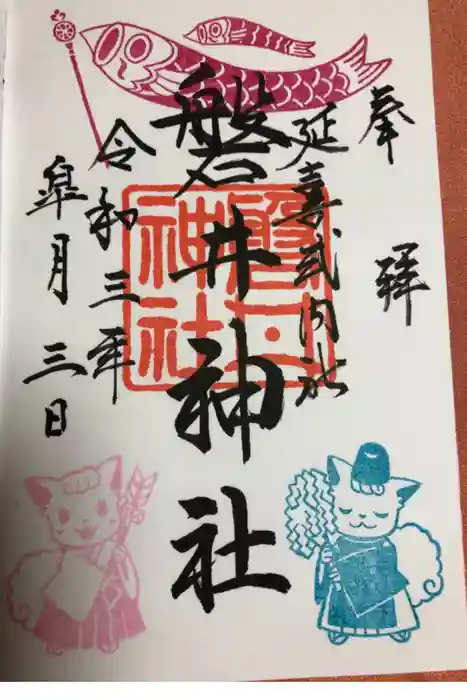 奉拝
延喜式内社
磐井神社
令和三年
皐月三日
磐井神社